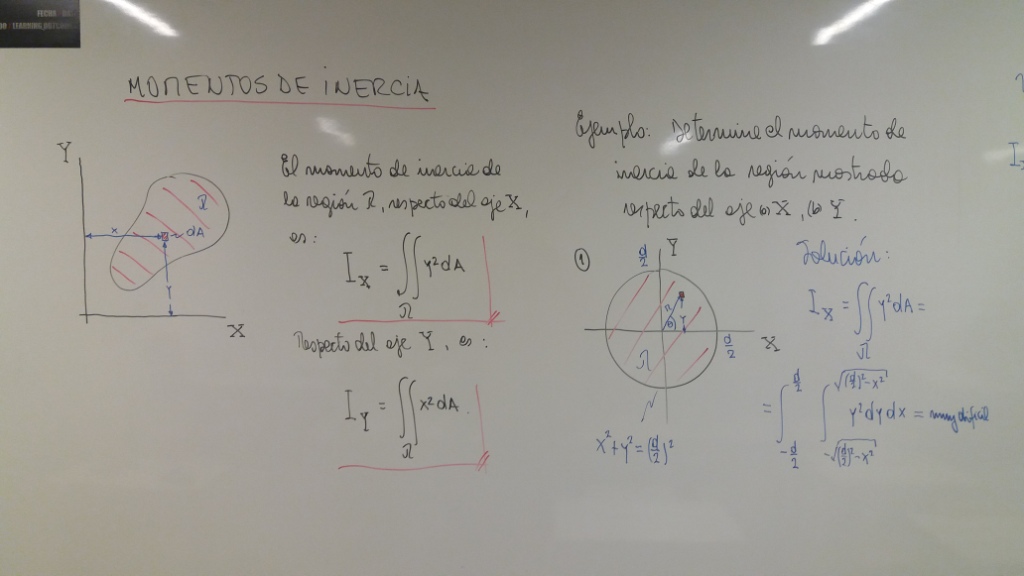 MOMENTOS DE INERCIA
Y
R
x
dA
Y
X
El momento de inercia de
la región R, respecto del eje X,
es:
I_X = ∬_R y² dA
Respecto del eje Y, es:
I_Y = ∬_R x² dA.
Ejemplo: Determine el momento de
inercia de la región mostrada
respecto del eje (a) X, (b) Y.
①
d/2
Y
r
θ
Y
R
d/2
X
x² + y² = (d/2)²
Solución:
I_X = ∬_R y² dA =
= ∫_{-d/2}^{d/2} ∫_{-√((d/2)²-x²)}^{√((d/2)²-x²)} y² dy dx = muy difícil